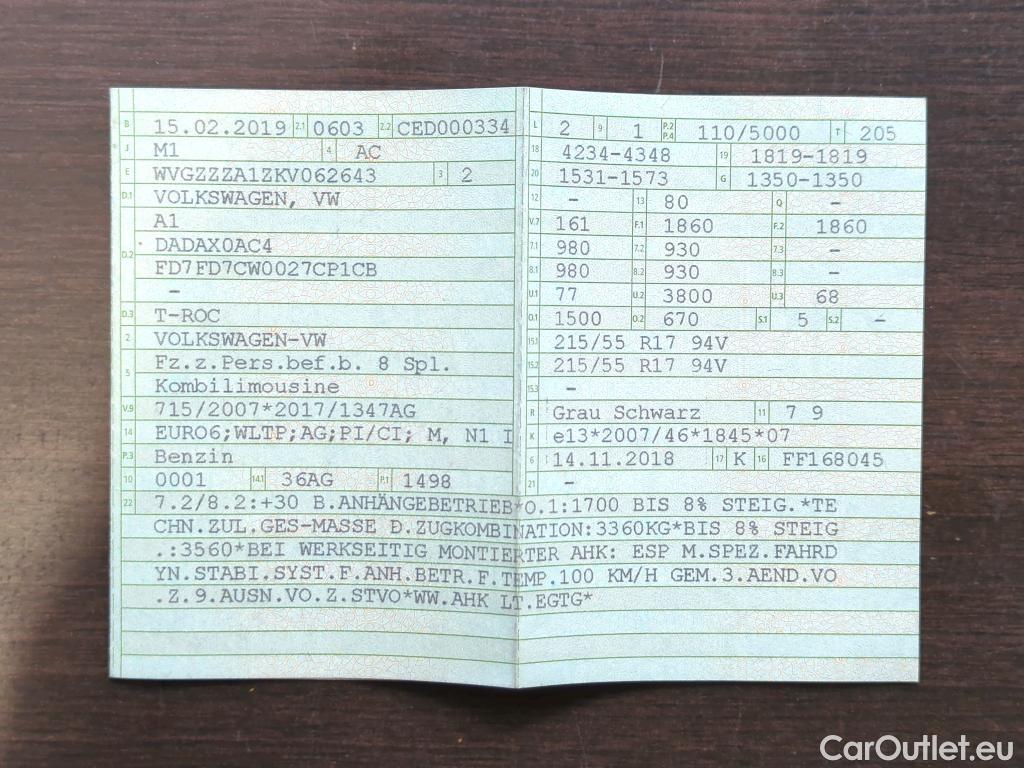 B 15.02.2019 2.1 0603 2.2 CED000334
J M1 4 AC
E WVGZZZA1ZKV062643 3 2
D.1 VOLKSWAGEN, VW
A1
D.2 DADAX0AC4
FD7FD7CW0027CP1CB
–
D.3 T-ROC
2 VOLKSWAGEN-VW
5 Fz.z.Pers.bef.b. 8 Spl.
Kombilimousine
V.9 715/2007*2017/1347AG
14 EURO6;WLTP;AG;PI/CI; M, N1 I
P.3 Benzin
10 0001 14.1 36AG P.1 1498
L 2 9 1 P.2 P.4 110/5000 T 205
18 4234-4348 19 1819-1819
20 1531-1573 G 1350-1350
12 – 13 80 Q –
V.7 161 F.1 1860 F.2 1860
7.1 980 7.2 930 7.3 –
8.1 980 8.2 930 8.3 –
U.1 77 U.2 3800 U.3 68
O.1 1500 O.2 670 S.1 5 S.2 –
15.1 215/55 R17 94V
15.2 215/55 R17 94V
15.3 –
R Grau Schwarz 11 7 9
K e13*2007/46*1845*07
6 14.11.2018 17 K 16 FF168045
21 –
22 7.2/8.2:+30 B.ANHÄNGEBETRIEB*O.1:1700 BIS 8% STEIG.*TE
CHN.ZUL.GES-MASSE D.ZUGKOMBINATION:3360KG*BIS 8% STEIG
.:3560*BEI WERKSEITIG MONTIERTER AHK: ESP M.SPEZ.FAHRD
YN.STABI.SYST.F.ANH.BETR.F.TEMP.100 KM/H GEM.3.AEND.VO
.Z.9.AUSN.VO.Z.STVO*WW.AHK LT.EGTG*
CarOutlet.eu